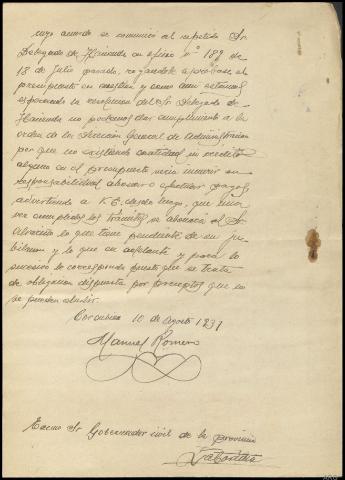 cuyo acuerdo se comunicó al repetido Sr
Delegado de Hacienda en oficio nº 189 de
18 de Julio pasado, rogandole aprobase el
presupuesto en cuestión y como aun estamos
esperando la resolucion del Sr Delegado de
Hacienda no podemos dar cumplimento a la
orden de la Dirección General de Administracion
por que no existiendo cantidad ni credito
alguno en el presupuesto seria incurrir en
responsabilidad abonar o efectuar pagos,
advertiendo a V.E. desde luego, que una
vez cumplidos los tramites se abonará al Sr
lo que tiene pendiente de su ju-
bilacion y lo que en adelante y para lo
sucesivo le corresponda puesto que se trata
de obligacion dispuesta por preceptos que no
se pueden eludir.
Corcubion 10 de Agosto 1931
Manuel Romero
Excmo Sr Gobernador civil de la provincia
La Coruña